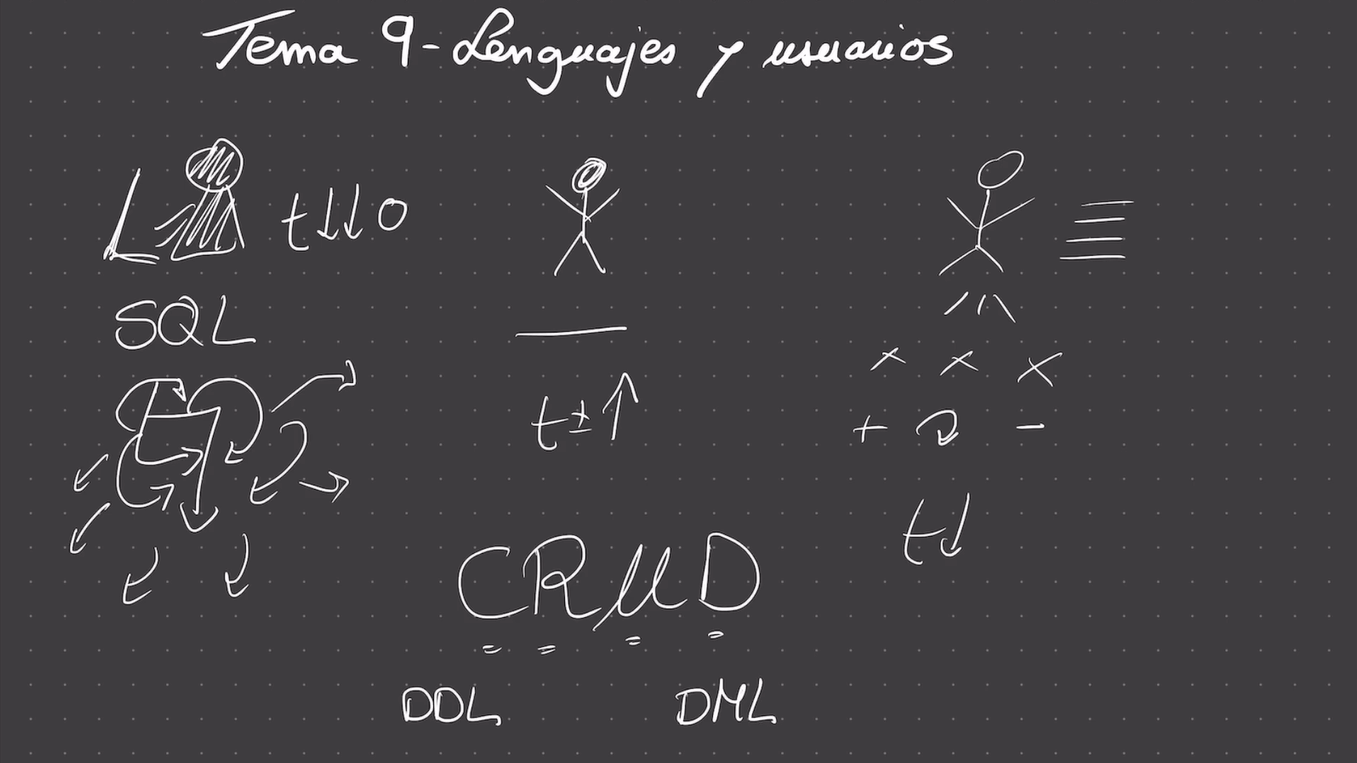 Tema 9 - Lenguajes y usuarios
t↓↓0
SQL
t±↑
+ 2 -
t↓
CRUD
DDL DML